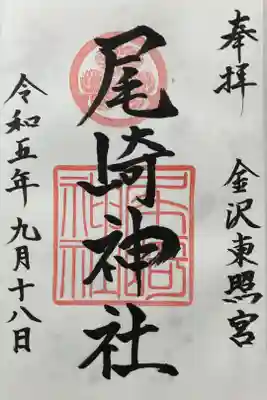 奉拝
金沢東照宮
尾崎神社
令和五年 九月十八日
尾崎神社